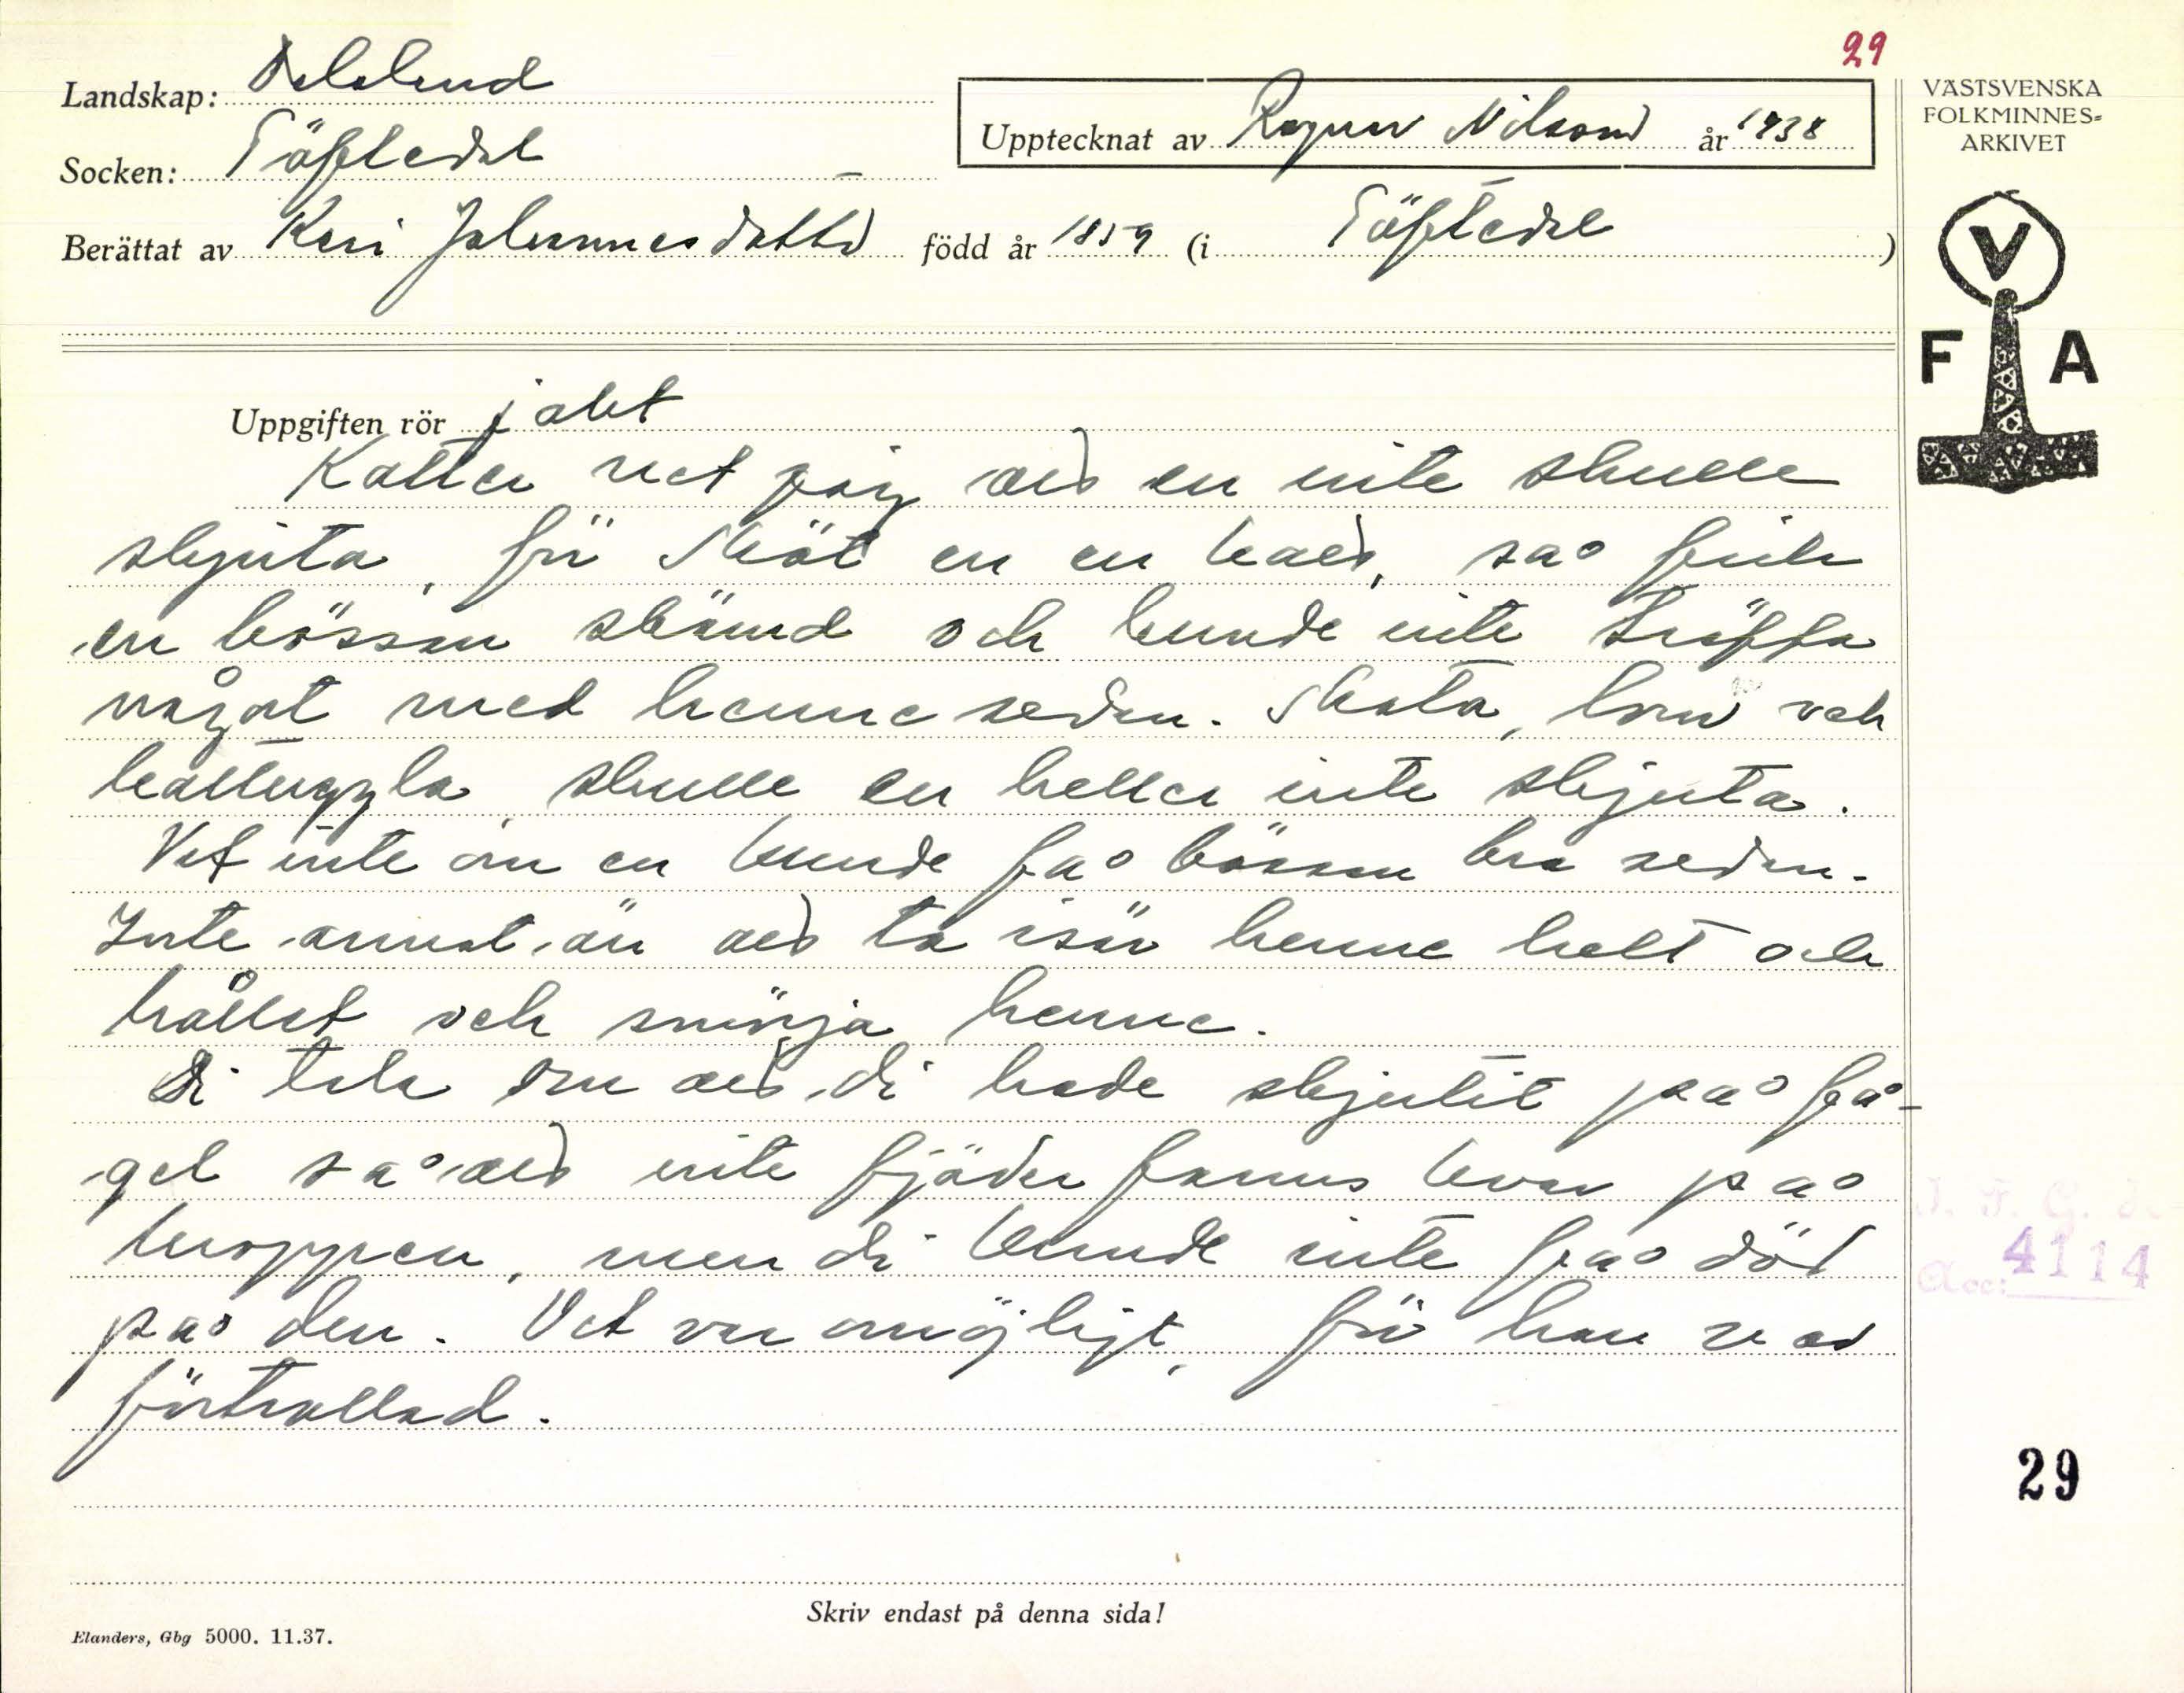 29
Landskap: Dalsland
Upptecknat av Ragnar Nilsson år 1938
Socken: Töftedal
Berättat av Kari Johannesdotter född år 1859 (i Töftedal)
VÄSTSVENSKA
FOLKMINNES=
ARKIVET
V
F A
Uppgiften rör jakt
Katter vet jag att en inte skulle
skjuta, för sköt en en katt, så fick
en bössan skämd och kunde inte träffa
något med henne sedan. Skata, korp och
kattuggla skulle en heller inte skjuta.
Vet inte om en kunde få bössan bra sedan.
Inte annat än att ta isär henne helt och
hållet och smörja henne.
Di tala om att di hade skjutit på få-
gel så att inte fjäder fanns kvar på
kroppen, men di kunde inte få död
på den. Det var omöjligt, för han var
förtrollad.
Acc: 4114
29
Skriv endast på denna sida!
Elanders, Gbg 5000. 11.37.